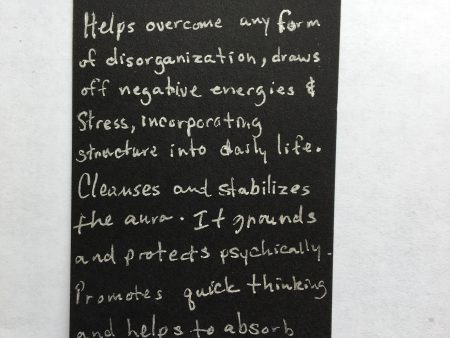 Helps overcome any form
of disorganization, draws
off negative energies &
Stress, incorporating
structure into daily life.
Cleanses and stabilizes
the aura. It grounds
and protects psychically.
Promotes quick thinking
and helps to absorb